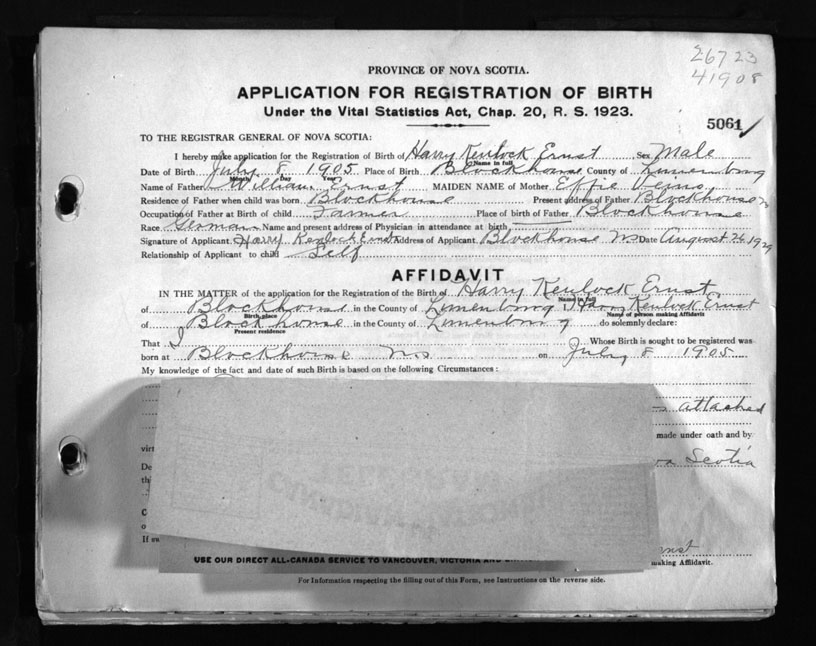 26723
41908
PROVINCE OF NOVA SCOTIA.
APPLICATION FOR REGISTRATION OF BIRTH
Under the Vital Statistics Act, Chap. 20, R. S. 1923.
5061
TO THE REGISTRAR GENERAL OF NOVA SCOTIA:
I hereby make application for the Registration of Birth of Harry Kenlock Ernst Sex Male
Name in full
Date of Birth July 8 1905 Place of Birth Blockhouse County of Lunenburg
Month Day Year
Name of Father William Ernst MAIDEN NAME of Mother Effie
Residence of Father when child was born Blockhouse Present address of Father Blockhouse
Occupation of Father at Birth of child Farmer Place of birth of Father Blockhouse
Race German Name and present address of Physician in attendance at birth
Signature of Applicant Harry Kenlock Ernst Address of Applicant Blockhouse NS Date August 26 1929
Relationship of Applicant to child Self
AFFIDAVIT
IN THE MATTER of the application for the Registration of the Birth of Harry Kenlock Ernst
Name in full
of Blockhouse in the County of Lunenburg Harry Kenlock Ernst
Birth place Name of person making Affidavit
of Blockhouse in the County of Lunenburg do solemnly declare:
Present residence
That I Whose Birth is sought to be registered was
born at Blockhouse NS on July 8 1905
My knowledge of the fact and date of such Birth is based on the following Circumstances:
attached
made under oath and by
virt
Scotia
De
th
C
o
If sw
rnst
USE OUR DIRECT ALL-CANADA SERVICE TO VANCOUVER, VICTORIA AND
making Affidavit.
For Information respecting the filling out of this Form, see Instructions on the reverse side.